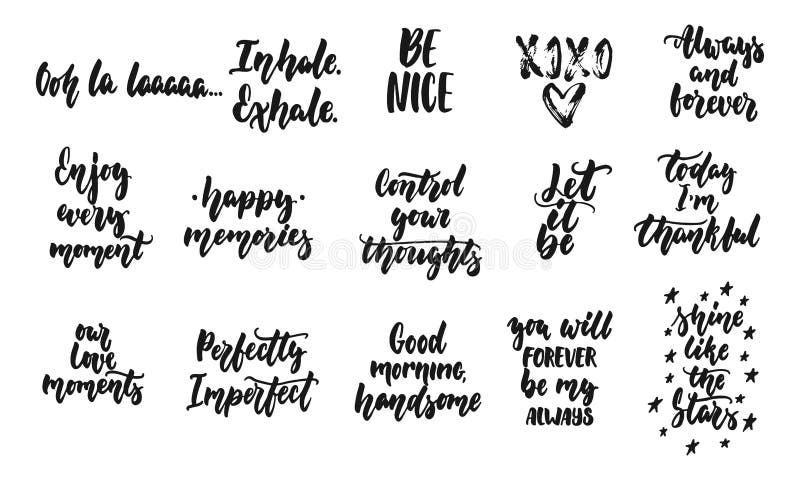 Ooh la laaaaa...
Inhale.
Exhale.
BE
NICE
XOXO
Always
and
forever
Enjoy
every
moment
·happy·
memories
Control
your
thoughts
Let
it
be
today
I'm
thankful
our
love
moments
Perfectly
Imperfect
Good
morning,
handsome
you will
FOREVER
be my
ALWAYS
shine
like
the
Stars
dreamstime